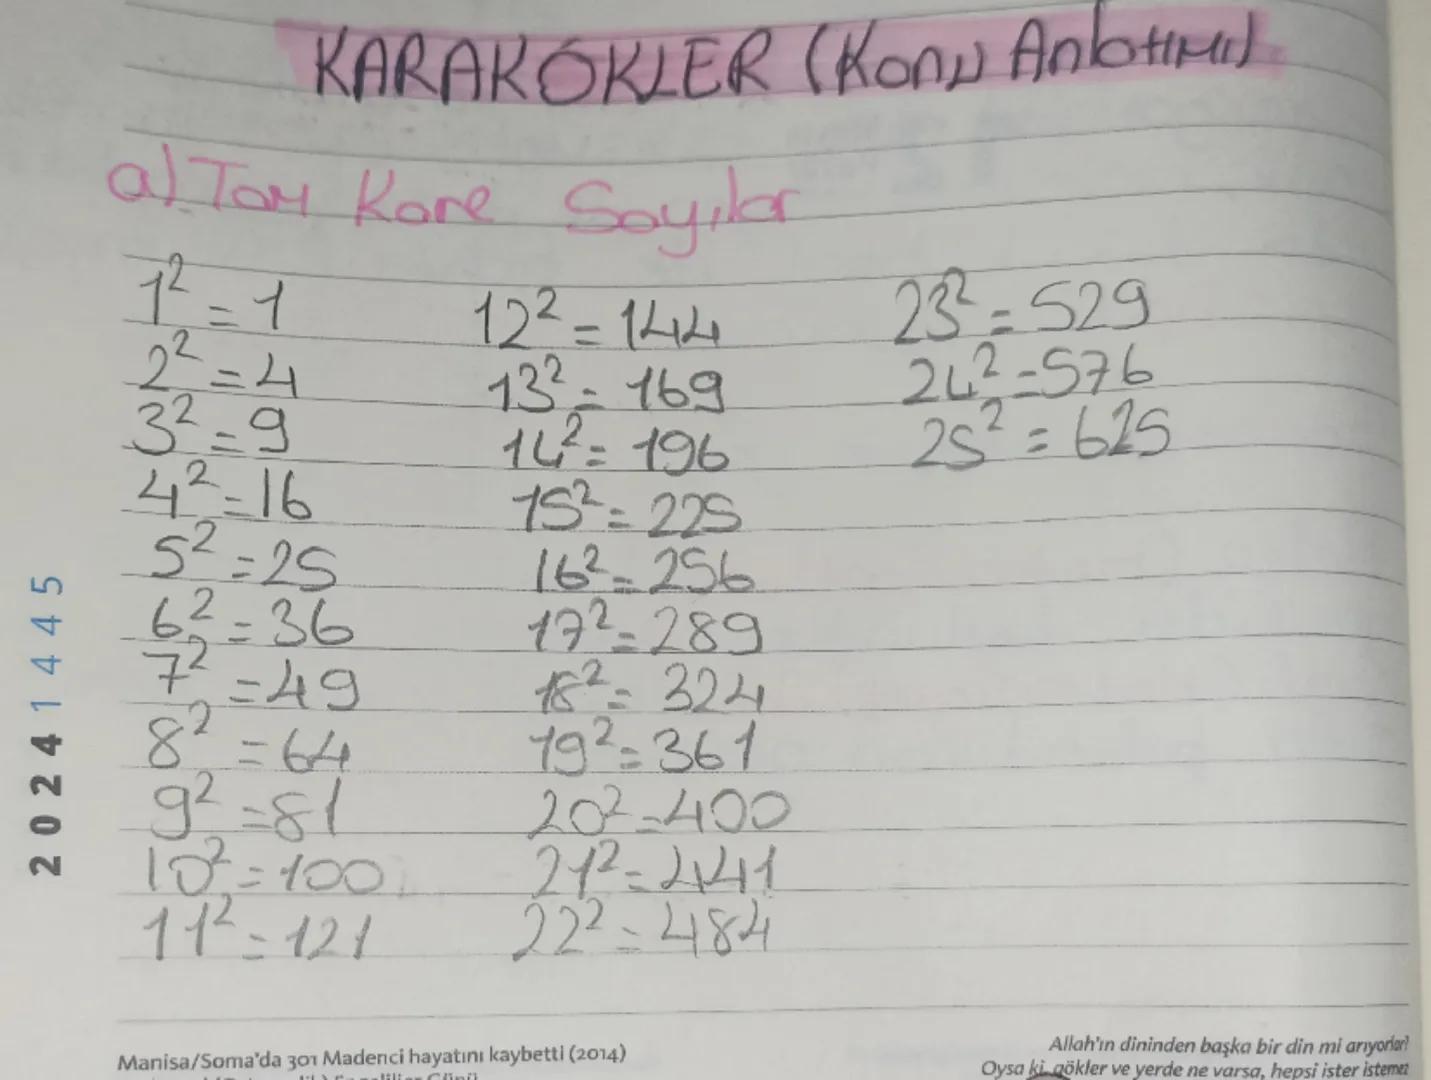 KARAKÖKLER (Konu Anlatımı)
a) Tam Kare Sayılar
1² = 1
2² = 4
3² = 9
4² = 16
5² = 25
6² = 36
7² = 49
8² = 64
9² = 81
10² = 100
11² = 121
12² = 144
13² = 169
14² = 196
15² = 225
16² = 256
17² = 289
18² = 324
19² = 361
20² = 400
21² = 441
22² = 484
23² = 529
24² = 576
25² = 625
2024 1445
Manisa/Soma'da 301 Madenci hayatını kaybetti (2014)
Allah'ın dininden başka bir din mi arıyorlar!
Oysa ki, gökler ve yerde ne varsa, hepsi ister istemez